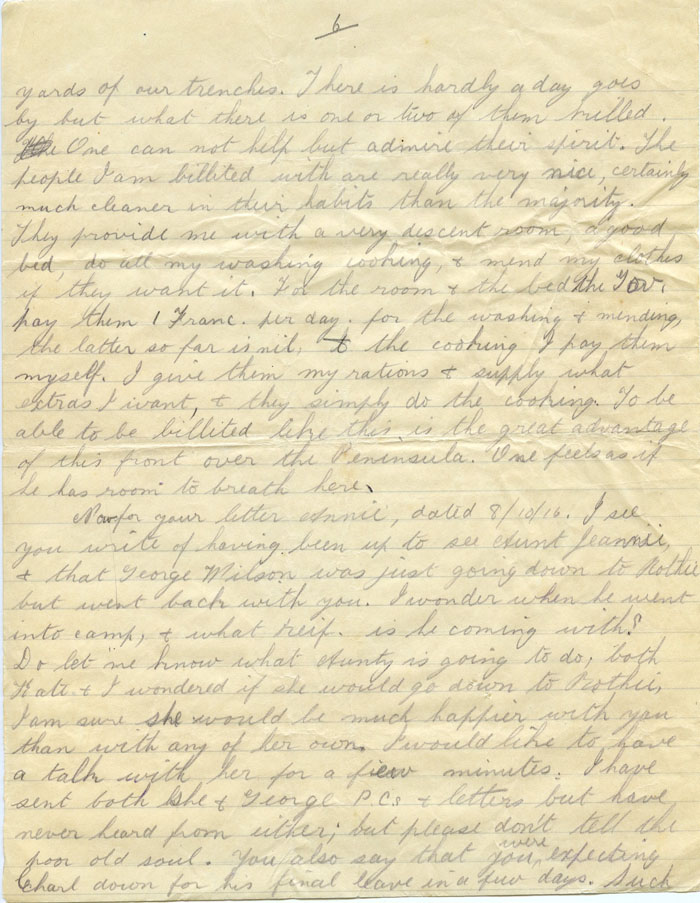 6
yards of our trenches. There is hardly a day goes
by but what there is one or two of them killed.
One can not help but admire their spirit. The
people I am billited with are really very nice, certainly
much cleaner in their habits than the majority.
They provide me with a very descent room, a good
bed, do all my washing cooking, & mend my clothes
if they want it. For the room & the bed the Gov.
pay them 1 Franc. per day. for the washing & mending,
the latter so far is nil, & the cooking I pay them
myself. I give them my rations & supply what
extras I want, & they simply do the cooking. To be
able to be billited like this is the great advantage
of this front over the Peninsula. One feels as if
he has room to breath here.
Now for your letter Annie, dated 8/10/16. I see
you write of having been up to see Aunt Jeannie,
& that George Wilson was just going down to Rothie
but went back with you. I wonder when he went
into camp, & what reif. is he coming with?
Do let me know what Aunty is going to do, both
Kate & I wondered if she would go down to Rothie,
I am sure she would be much happier with you
than with any of her own. I would like to have
a talk with her for a few minutes. I have
sent both she & George P.Cs & letters but have
never heard from either; but please don't tell the
poor old soul. You also say that you were expecting
Charl down for his final leave in a few days. Such